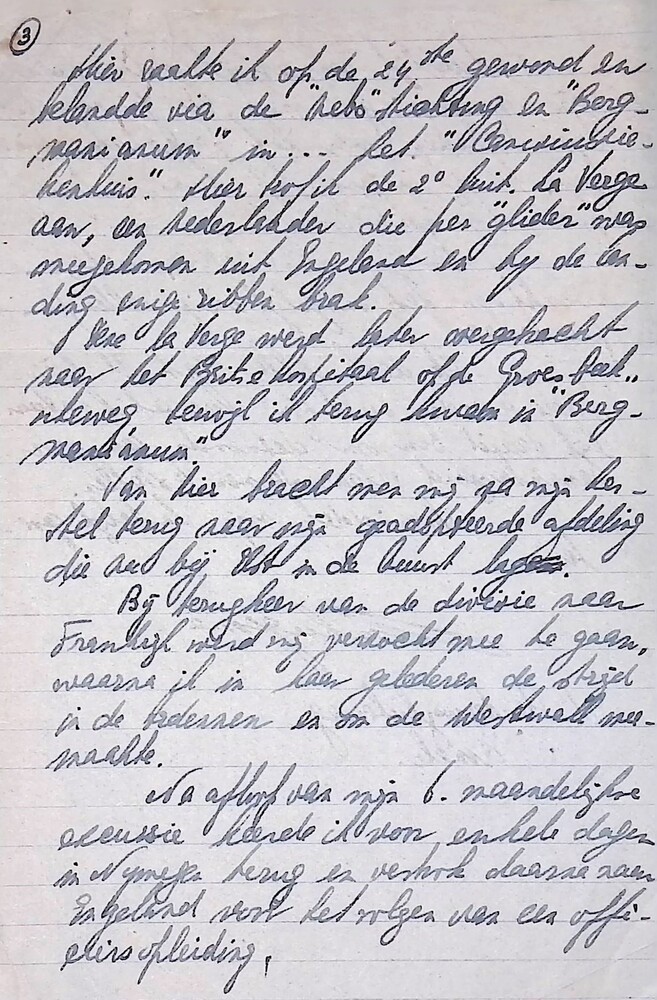 3
Hier raakte ik op de 24ste gewond en
belandde via de "Nebo" stichting en "Berg-
manianum" in... het "Canisiuszie-
kenhuis". Hier trof ik de 2e luit. La Verge
aan, een Nederlander die per "glider" was
meegekomen uit Engeland en bij de lan-
ding enige ribben brak.
La Verge werd later overgebracht
naar het Britse hospitaal op de Groesbeek-
seweg, terwijl ik terug kwam in "Berg-
manianum."
Van hier bracht men mij na mijn her-
stel terug naar mijn geadopteerde afdeling
die nu bij Elst in de buurt lag.
Bij terugkeer van de divisie naar
Frankrijk werd mij verzocht mee te gaan,
waarna ik in haar gelederen de strijd
in de Ardennen en om de Westwall mee-
maakte.
Na afloop van mijn 6. maandelijkse
excussie keerde ik voor enkele dagen
in Nymegen terug en vertrok daarna naar
Engeland voor het volgen van een offi-
ciersopleiding.